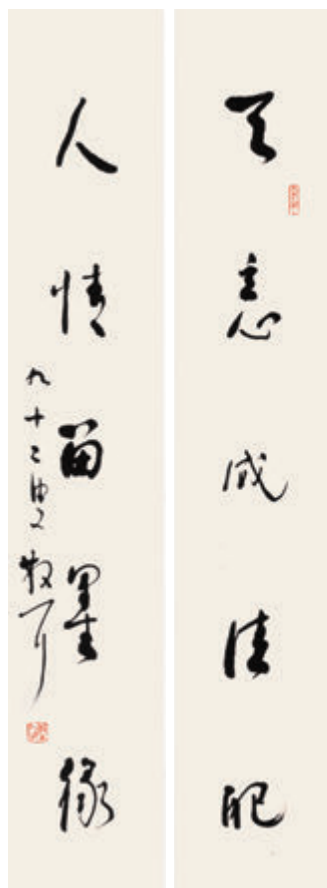 天意成佳配
人情留墨緣
九十二叟